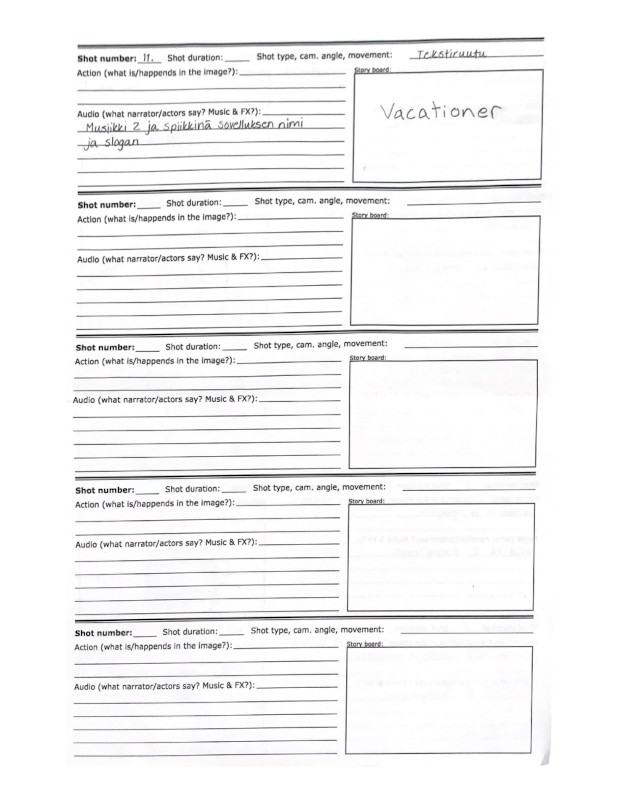 Shot number: 11. Shot duration:_____ Shot type, cam. angle, movement: Tekstiruutu
Action (what is/happends in the image?):
Story board:
Vacationer
Audio (what narrator/actors say? Music & FX?):
Musiikki 2 ja spiikkinä sovelluksen nimi
ja slogan
Shot number:_____ Shot duration:_____ Shot type, cam. angle, movement:
Action (what is/happends in the image?):
Story board:
Audio (what narrator/actors say? Music & FX?):
Shot number:_____ Shot duration:_____ Shot type, cam. angle, movement:
Action (what is/happends in the image?):
Story board:
Audio (what narrator/actors say? Music & FX?):
Shot number:_____ Shot duration:_____ Shot type, cam. angle, movement:
Action (what is/happends in the image?):
Story board:
Audio (what narrator/actors say? Music & FX?):
Shot number:_____ Shot duration:_____ Shot type, cam. angle, movement:
Action (what is/happends in the image?):
Story board:
Audio (what narrator/actors say? Music & FX?):